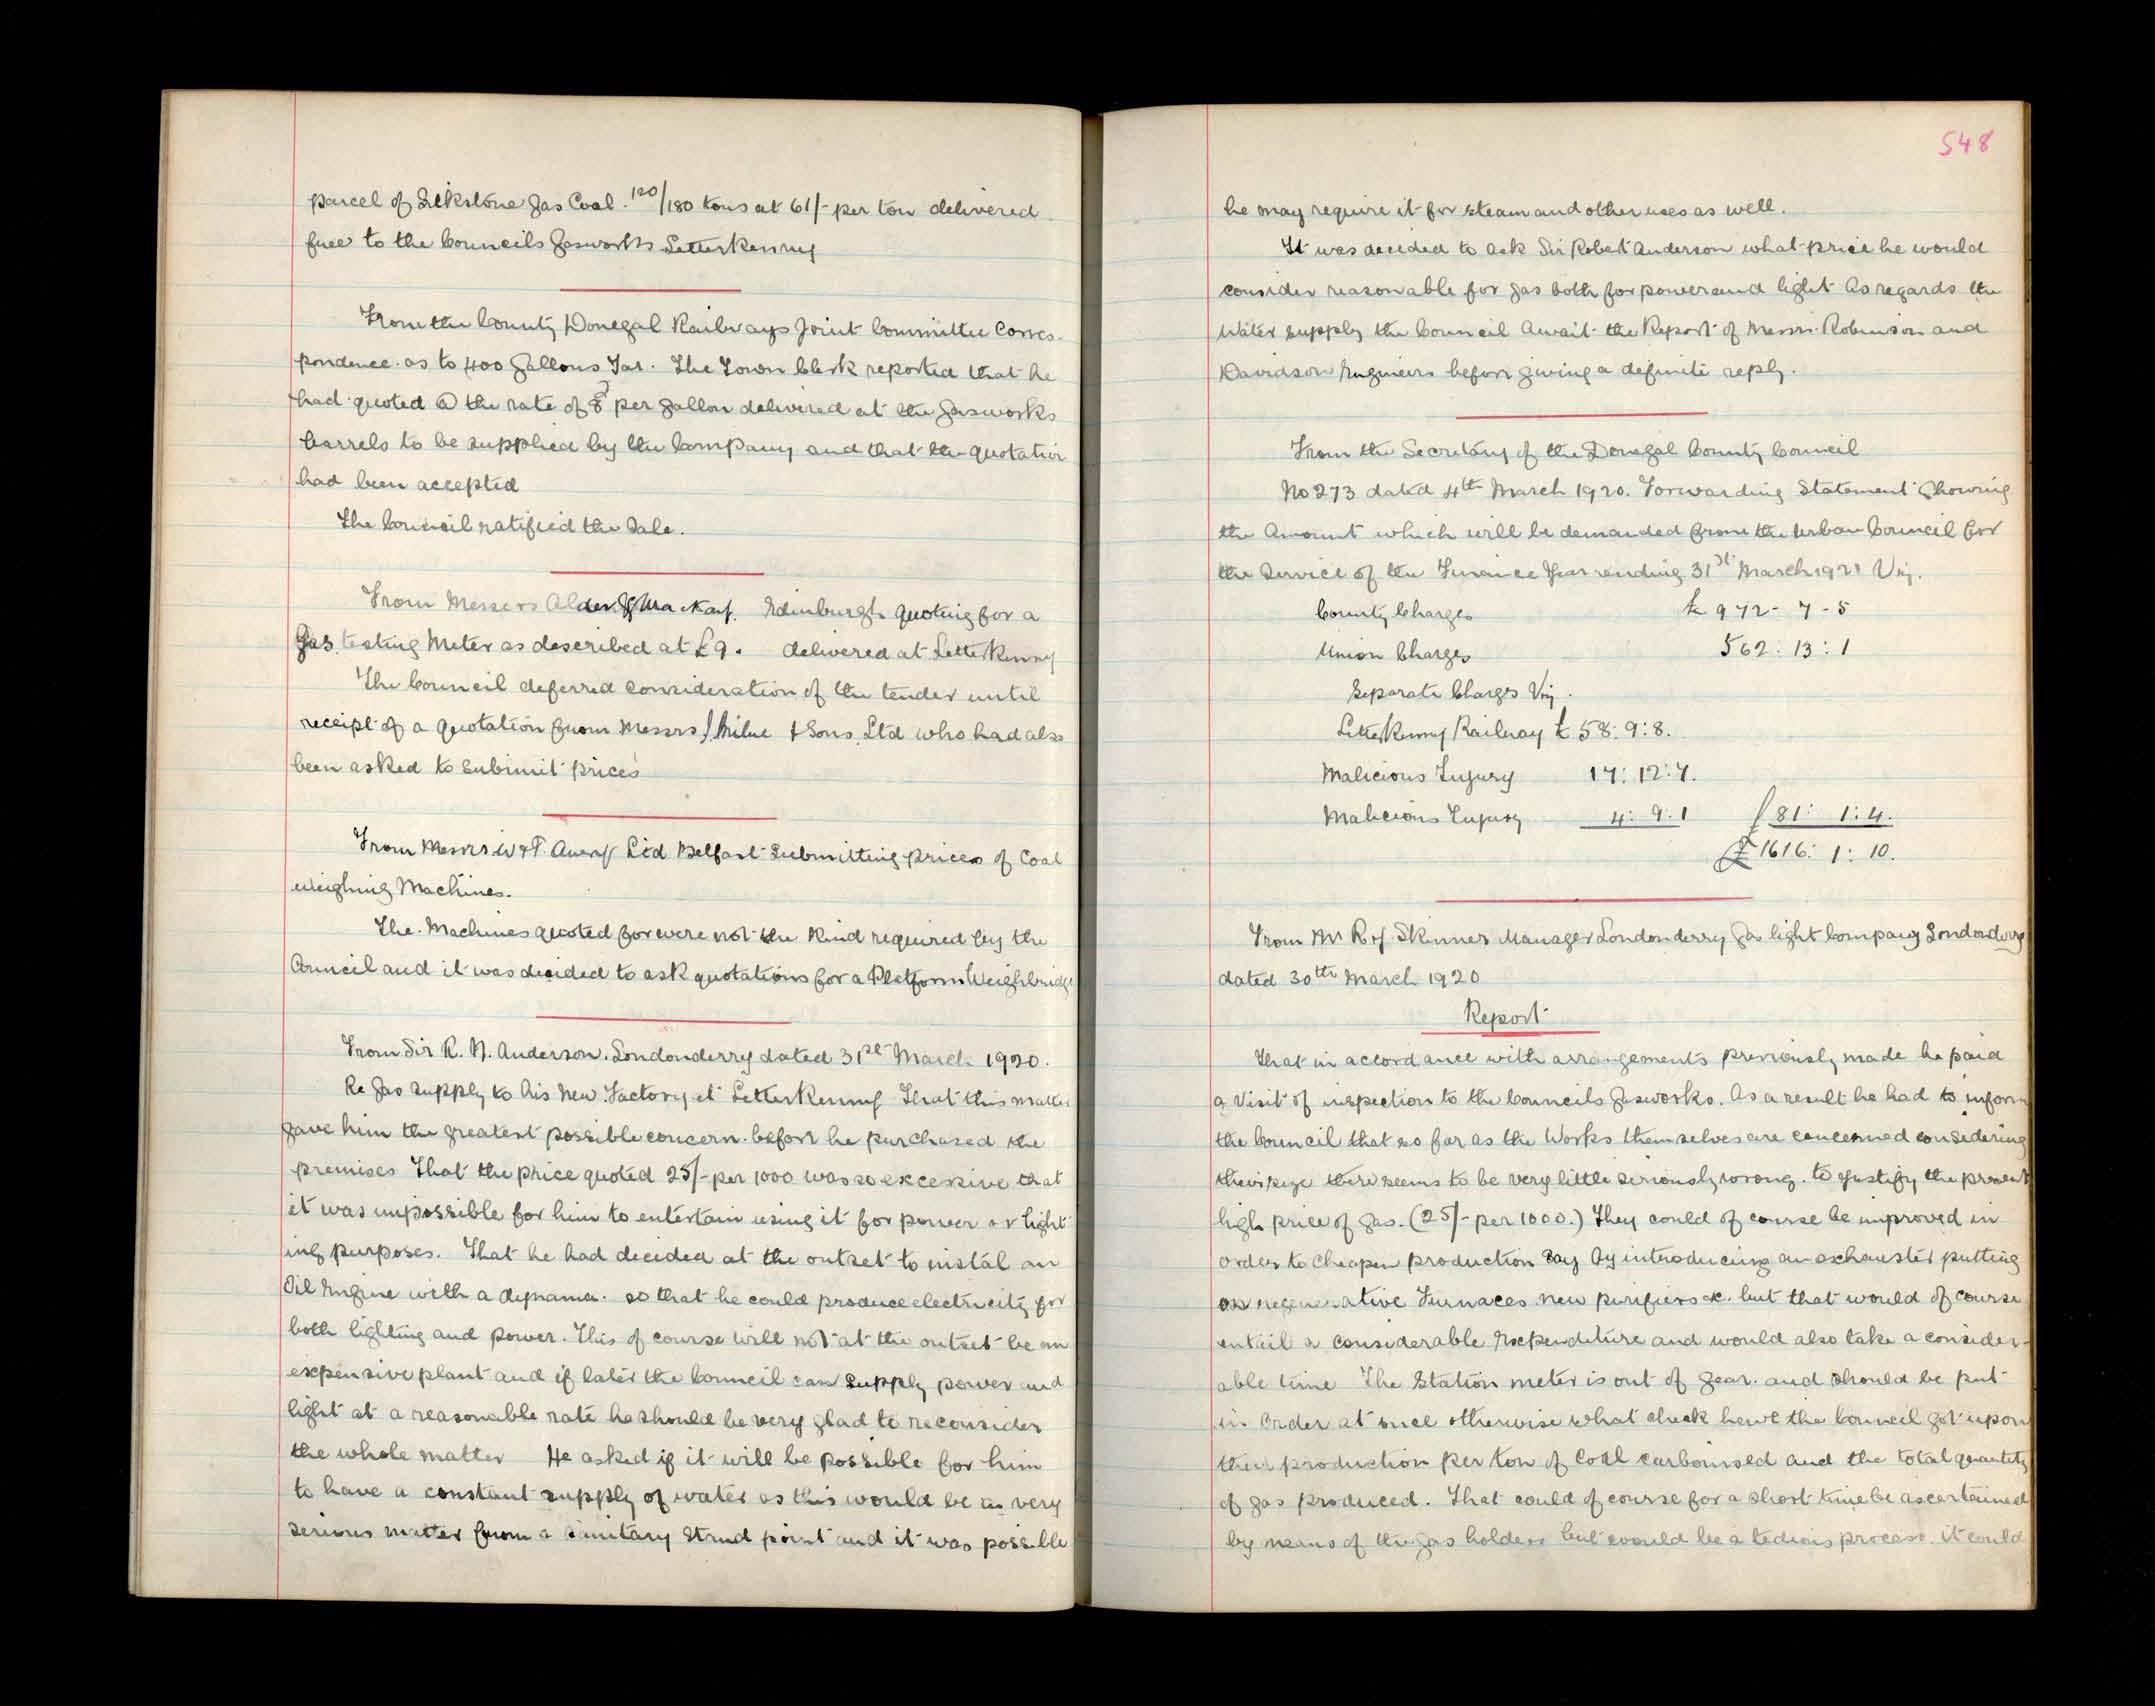 parcel of Silkstone Gas Coal. 120/180 tons at 61/- per ton delivered
free to the Councils Gasworks Letterkenny
From the County Donegal Railways Joint Committee Corres-
pondence as to 400 gallons Tar. The Town Clerk reported that he
had quoted @ the rate of 8d per gallon delivered at the Gasworks
barrels to be supplied by the Company and that the quotation
had been accepted
The Council ratified the Sale.
From Messrs Alder & Mackay. Edinburgh quoting for a
Gas testing Meter as described at £9. delivered at Letterkenny
The Council deferred consideration of the tender until
receipt of a quotation from Messrs J. Milne & Sons Ltd who had also
been asked to submit prices
From Messrs W & T. Avery Ltd Belfast Submitting prices of Coal
weighing Machines.
The Machines quoted for were not the kind required by the
Council and it was decided to ask quotations for a Platform Weighbridge
From Sir R. N. Anderson. Londonderry dated 31st March 1920.
Re Gas supply to his new Factory at Letterkenny That this matter
gave him the greatest possible concern before he purchased the
premises That the price quoted 25/- per 1000 was so excessive that
it was impossible for him to entertain using it for power or light
ing purposes. That he had decided at the outset to instal an
Oil Engine with a dynamo. so that he could produce electricity for
both lighting and power. This of course will not at the outset be an
expensive plant and if later the Council can supply power and
light at a reasonable rate he should be very glad to reconsider
the whole matter He asked if it will be possible for him
to have a constant supply of water as this would be a very
serious matter from a sanitary stand point and it was possible
548
he may require it for steam and other uses as well.
It was decided to ask Sir Robert Anderson what price he would
consider reasonable for gas both for power and light As regards the
Water supply the Council await the Report of Messrs Robinson and
Davidson Engineers before giving a definite reply.
From the Secretary of the Donegal County Council
No 273 dated 4th March 1920. Forwarding Statement Showing
the Amount which will be demanded from the Urban Council for
the Service of the Finance Year ending 31st March 1921 Viz.
County Charges £ 972 - 7 - 5
Union Charges 562 : 13 : 1
Separate Charges Viz.
Letterkenny Railway £ 58 : 9 : 8.
Malicious Injury 17 : 12 : 7.
Malicious Injury 4 : 9 : 1 81 : 1 : 4.
£ 1616 : 1 : 10.
From Mr R. J. Skinner Manager Londonderry Gas light Company Londonderry
dated 30th March 1920
Report
That in accordance with arrangements previously made he paid
a Visit of inspection to the Councils Gasworks. As a result he had to inform
the Council that so far as the Works themselves are concerned considering
their size there seems to be very little seriously wrong. to justify the present
high price of gas. (25/- per 1000.) They could of course be improved in
order to cheapen production say by introducing an exhauster putting
on regenerative Furnaces new purifiers &c. but that would of course
entail a considerable Expenditure and would also take a consider-
able time The Station meter is out of gear. and should be put
in order at once otherwise what check have the Council got upon
their production per ton of Coal carbonised and the total quantity
of gas produced. That could of course for a short time be ascertained
by means of the gas holders but would be a tedious process. it could